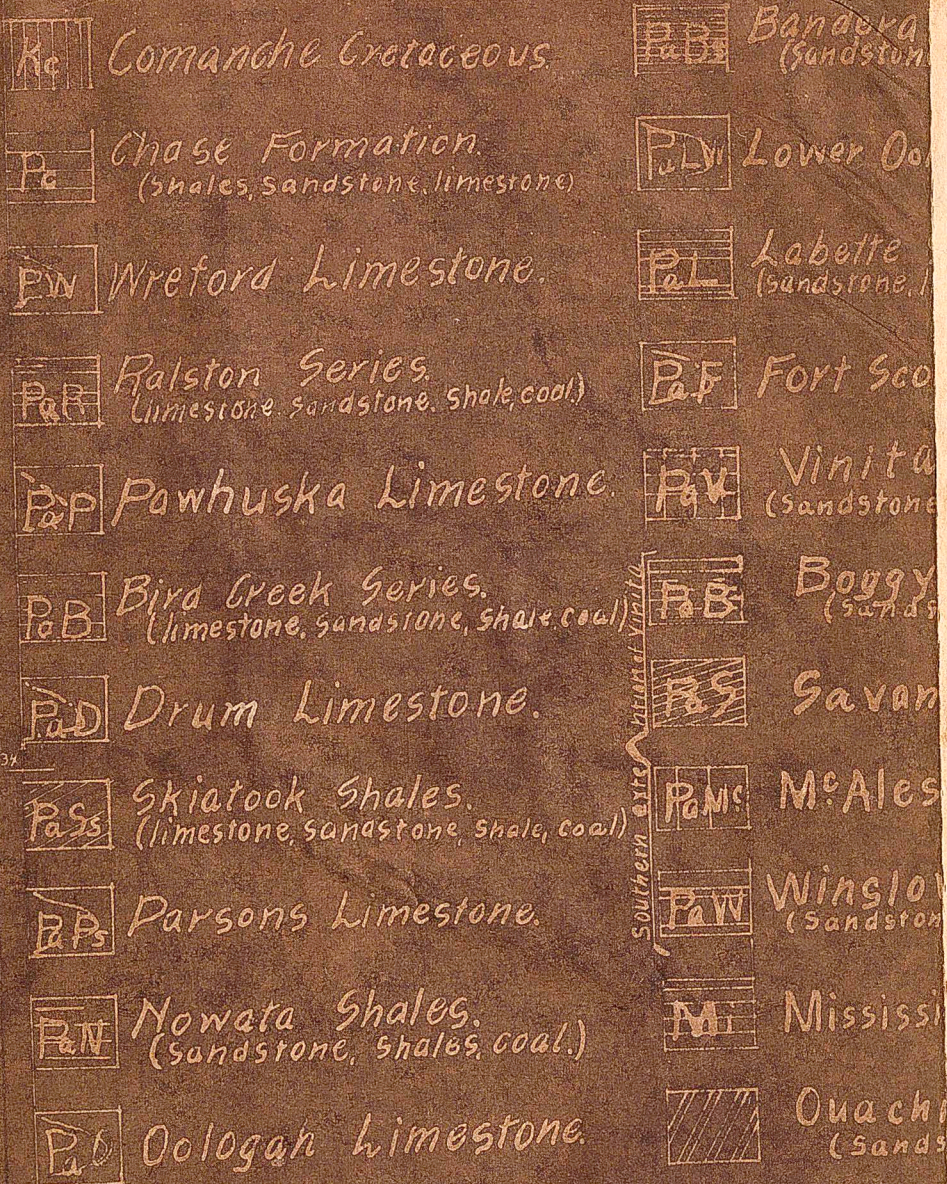 Kc Comanche Cretaceous.
Pc Chase Formation.
(Shales, sandstone, limestone)
PW Wreford Limestone.
PaR Ralston Series.
(limestone, sandstone, shale, coal.)
PaP Pawhuska Limestone.
PaB Bird Creek Series.
(limestone, sandstone, shale, coal)
PaD Drum Limestone.
34
PaSs Skiatook Shales.
(limestone, sandstone, shale, coal)
PaPs Parsons Limestone.
PaN Nowata Shales.
(Sandstone, shales, coal.)
PaO Oologah Limestone.
PaBs Bandera
(Sandston
PaLW Lower Ool
PaL Labette
(Sandstone, l
PaF Fort Sco
PaV Vinita
(Sandstone
Southern of Vinita
PaBs Boggy
(Sands
PaS Savan
PaMc McAles
PaW Winslow
(Sandston
M Mississi
Ouachi
(Sands